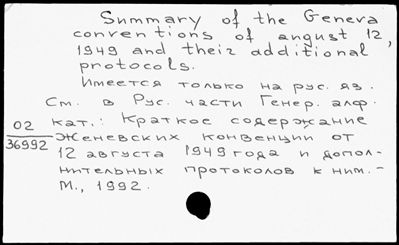 Summary of the Geneva
conventions of angust 12,
1949 and their additional
protocols.
Имеется только на рус. яз.
См. в Рус. части Генер. алф.
кат.: Краткое содержание
Женевских конвенции от
12 августа 1949 года и допол-
нительных протоколов к ним.-
М., 1992.
02
36992